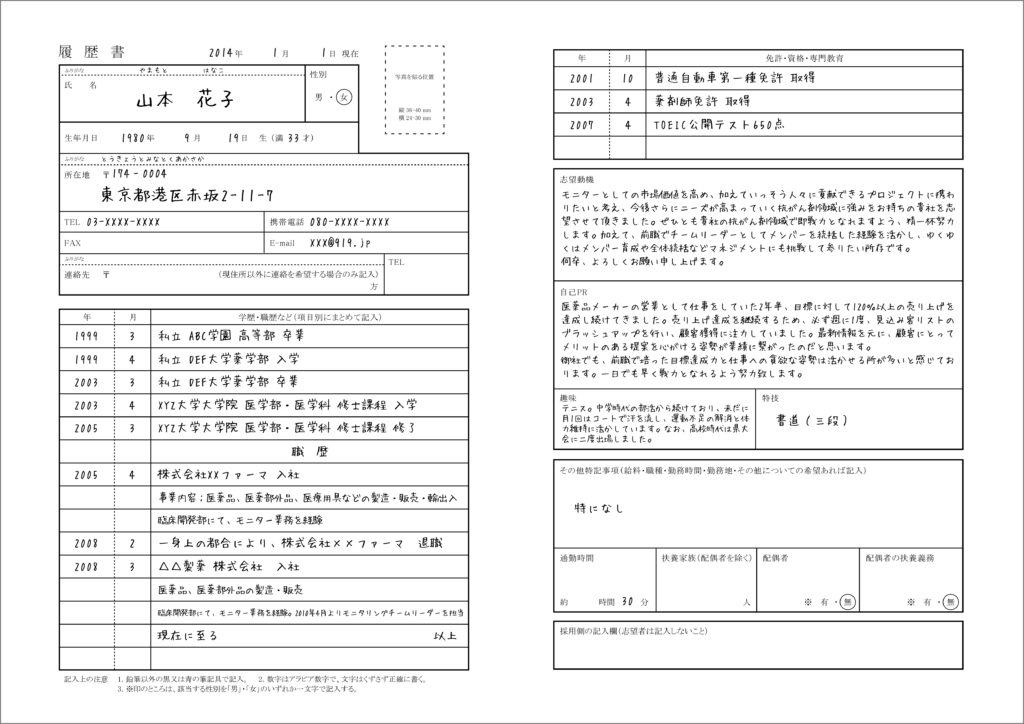 履歴書 2014年 1月 1日 現在
ふりがな やまもと はなこ
氏 名 山本 花子
性別
男・女
生年月日 1980年 9月 19日 生 (満 33才)
写真を貼る位置
縦 36-40 mm
横 24-30 mm
ふりがな とうきょうとみなとくあかさか
所在地 〒174-0004
東京都港区赤坂2-11-7
TEL 03-XXXX-XXXX 携帯電話 080-XXXX-XXXX
FAX E-mail XXX@919.jp
ふりがな
連絡先 〒 (現住所以外に連絡を希望する場合のみ記入)
方
TEL
年 月 学歴・職歴など(項目別にまとめて記入)
1999 3 私立 ABC学園 高等部 卒業
1999 4 私立 DEF大学薬学部 入学
2003 3 私立 DEF大学薬学部 卒業
2003 4 XYZ大学大学院 医学部・医学科 修士課程 入学
2005 3 XYZ大学大学院 医学部・医学科 修士課程 修了
職 歴
2005 4 株式会社XXファーマ 入社
事業内容;医薬品、医薬部外品、医療用具などの製造・販売・輸出入
臨床開発部にて、モニター業務を経験
2008 2 一身上の都合により、株式会社××ファーマ 退職
2008 3 △△製薬 株式会社 入社
医薬品、医薬部外品の製造・販売
臨床開発部にて、モニター業務を経験。2010年4月よりモニタリングチームリーダーを担当
現在に至る 以上
記入上の注意 1. 鉛筆以外の黒又は青の筆記具で記入。 2. 数字はアラビア数字で、文字はくずさず正確に書く。
3. ※印のところは、該当する性別を「男」・「女」のいずれか一文字で記入する。
年 月 免許・資格・専門教育
2001 10 普通自動車第一種免許 取得
2003 4 薬剤師免許 取得
2007 4 TOEIC公開テスト650点
志望動機
モニターとしての市場価値を高め、加えていっそう人々に貢献できるプロジェクトに携わ
りたいと考え、今後さらにニーズが高まっていく抗がん剤領域に強みをお持ちの貴社を志
望させて頂きました。ぜひとも貴社の抗がん剤領域で即戦力となれますよう、精一杯努力
します。加えて、前職でチームリーダーとしてメンバーを統括した経験を活かし、ゆくゆ
くはメンバー育成や全体統括などマネジメントにも挑戦して参りたい所存です。
何卒、よろしくお願い申し上げます。
自己PR
医薬品メーカーの営業として仕事をしていた2年半、目標に対して120%以上の売り上げを
達成し続けてきました。売り上げ達成を継続するため、必ず週に1度、見込み客リストの
ブラッシュアップを行い、顧客獲得に注力していました。最新情報を元に、顧客にとって
メリットのある提案を心がける姿勢が業績に繋がったのだと思います。
御社でも、前職で培った目標達成力と仕事への貪欲な姿勢は活かせる所が多いと感じてお
ります。一日でも早く戦力となれるよう努力致します。
趣味
テニス。中学時代の部活から続けており、未だに
月1回はコートで汗を流し、運動不足の解消と体
力維持に活かしています。なお、高校時代は県大
会に二度出場しました。
特技
書道(三段)
その他特記事項(給料・職種・勤務時間・勤務地・その他についての希望あれば記入)
特になし
通勤時間 扶養家族(配偶者を除く) 配偶者 配偶者の扶養義務
約 時間 30 分 人 ※ 有・無 ※ 有・無
採用側の記入欄(志望者は記入しないこと)